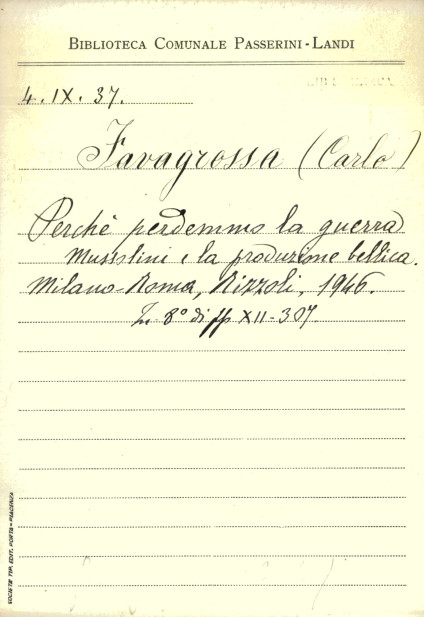 BIBLIOTECA COMUNALE PASSERINI-LANDI
4. IX. 37.
Favagrossa (Carlo)
Perchè perdemmo la guerra
Mussolini e la produzione bellica.
Milano-Roma, Rizzoli, 1946.
In 8° di pp XII-307.
SOCIETÀ TIP. EDIT. PORTA-PIACENZA